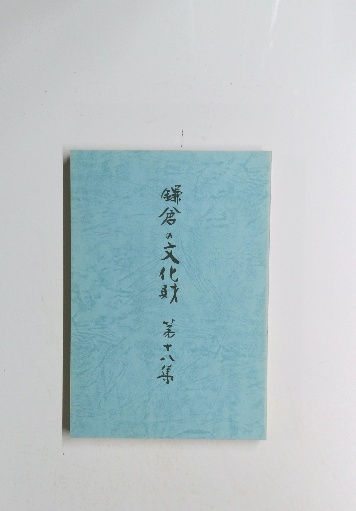 鎌倉の文化財 第十八集